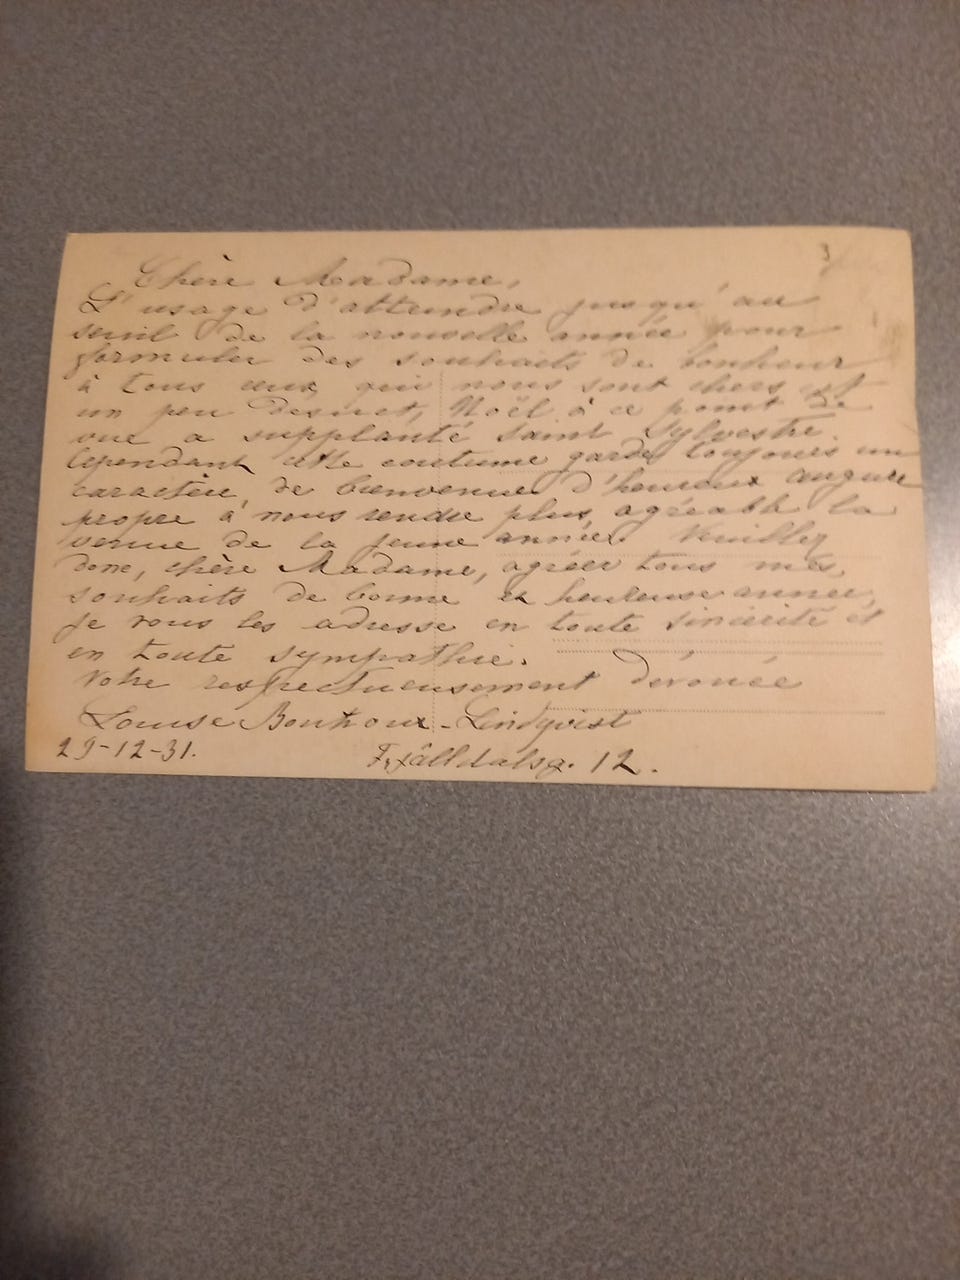 3
Chère Madame,
L'usage d'attendre jusqu'au
seuil de la nouvelle année pour
formuler des souhaits de bonheur
à tous ceux qui nous sont chers est
un peu desuet, Noël à ce point de
vue a supplanté Saint Sylvestre.
Cependant cette coutume garde toujours un
caractère de bienvenue d'heureux augure
propre à nous rendre plus agréable la
venue de la jeune année. Veuillez
donc, chère Madame, agréer tous mes
souhaits de bonne et heureuse année,
je vous les adresse en toute sincérité et
en toute sympathie.
Votre respectueusement dévouée
Louise Bonhoux-Lindqvist
29-12-31. Fjälldalsg. 12.